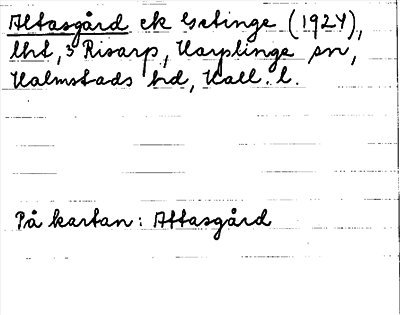 Attasgård ek Getinge (1924),
lht, 3 Risarp, Harplinge sn,
Halmstads hd, Hall. l.
På kartan: Attasgård